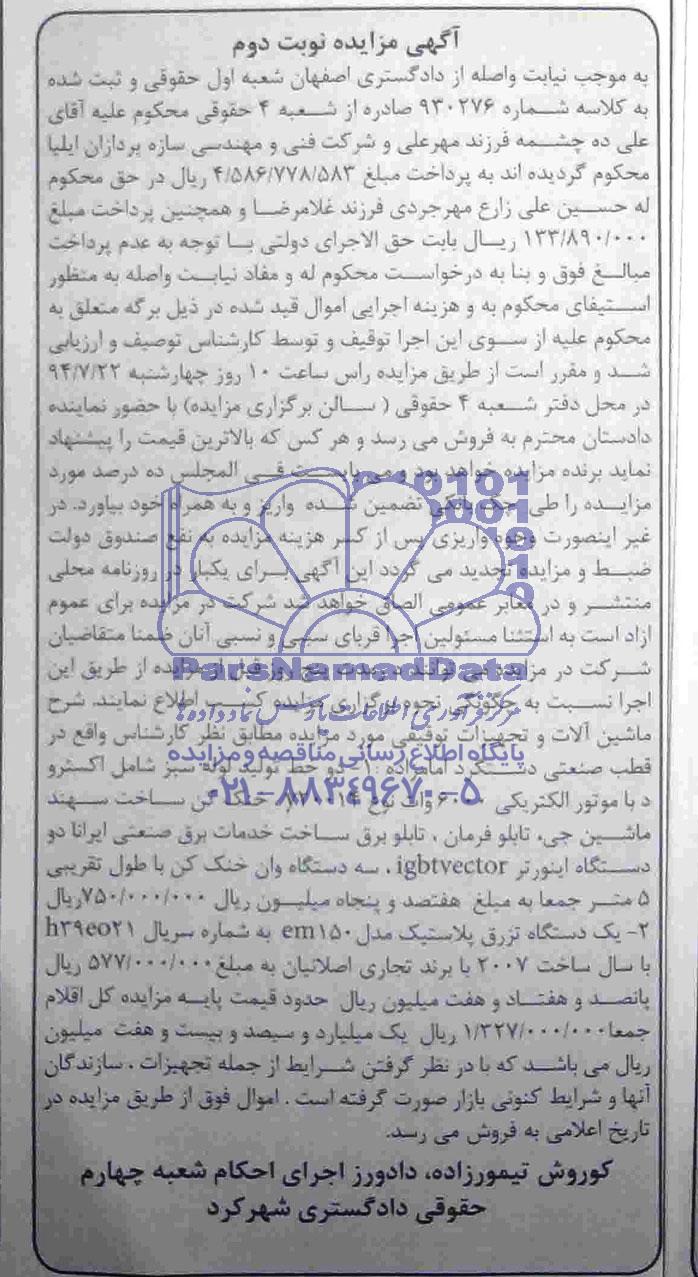 آگهی مزایده نوبت دوم
به موجب نیابت واصله از دادگستری اصفهان شعبه اول حقوقی و ثبت شده
به کلاسه شماره ۹۳۰۲۷۶ صادره از شعبه ۴ حقوقی محکوم علیه آقای
علی ده چشمه فرزند مهرعلی و شرکت فنی و مهندسی سازه پردازان ایلیا
محکوم گردیده اند به پرداخت مبلغ ۴/۵۸۶/۷۷۸/۵۸۳ ریال در حق محکوم
له حسین علی زارع مهرجردی فرزند غلامرضا و همچنین پرداخت مبلغ
۱۳۳/۸۹۰/۰۰۰ ریال بابت حق الاجرای دولتی با توجه به عدم پرداخت
مبالغ فوق و بنا به درخواست محکوم له و مفاد نیابت واصله به منظور
استیفای محکوم به و هزینه اجرایی اموال قید شده در ذیل برگه متعلق به
محکوم علیه از سوی این اجرا توقیف و توسط کارشناس توصیف و ارزیابی
شد و مقرر است از طریق مزایده راس ساعت ۱۰ روز چهارشنبه ۹۴/۷/۲۲
در محل دفتر شعبه ۴ حقوقی ( سالن برگزاری مزایده) با حضور نماینده
دادستان محترم به فروش می رسد و هر کس که بالاترین قیمت را پیشنهاد
نماید برنده مزایده خواهد بود و می بایست فی المجلس ده درصد مورد
مزایده را طی چک بانکی تضمین شده واریز و به همراه خود بیاورد. در
غیر اینصورت وجوه واریزی پس از کسر هزینه مزایده به نفع صندوق دولت
ضبط و مزایده تجدید می گردد این آگهی برای یکبار در روزنامه محلی
منتشر و در معابر عمومی الصاق خواهد شد شرکت در مزایده برای عموم
ازاد است به استثنا مسئولین اجرا قربای سببی و نسبی آنان ضمنا متقاضیان
شرکت در مزایده می توانند در مدت پنج روز قبل از مزایده از طریق این
اجرا نسبت به چگونگی نحوه برگزاری مزایده کسب اطلاع نمایند. شرح
ماشین آلات و تجهیزات توقیفی مورد مزایده مطابق نظر کارشناس واقع در
قطب صنعتی دستگرد امامزاده : ۱- دو خط تولید لوله سبز شامل اکسترو
د با موتور الکتریکی ۶۰۰۰ وات نوع خنک کن ساخت سهند
ماشین جی، تابلو فرمان ، تابلو برق ساخت خدمات برق صنعتی ایرانا دو
دستگاه اینورتر igbtvector ، سه دستگاه وان خنک کن با طول تقریبی
۵ متر جمعا به مبلغ هفتصد و پنجاه میلیون ریال ۷۵۰/۰۰۰/۰۰۰ریال
۲- یک دستگاه تزرق پلاستیک مدل em۱۵۰ به شماره سریال h۳۹e۰۲۱
با سال ساخت ۲۰۰۷ با برند تجاری اصلانیان به مبلغ۵۷۷/۰۰۰/۰۰۰ ریال
پانصد و هفتاد و هفت میلیون ریال حدود قیمت پایه مزایده کل اقلام
جمعا۱/۳۲۷/۰۰۰/۰۰۰ ریال یک میلیارد و سیصد و بیست و هفت میلیون
ریال می باشد که با در نظر گرفتن شرایط از جمله تجهیزات ، سازندگان
آنها و شرایط کنونی بازار صورت گرفته است . اموال فوق از طریق مزایده در
تاریخ اعلامی به فروش می رسد.
کوروش تیمورزاده، دادورز اجرای احکام شعبه چهارم
حقوقی دادگستری شهرکرد
ParsNamadData
مرکز فرآوری اطلاعات پارس نماد داده ها
پایگاه اطلاع رسانی مناقصه و مزایده
۰۲۱-۸۸۳۴۹۶۷۰-۵